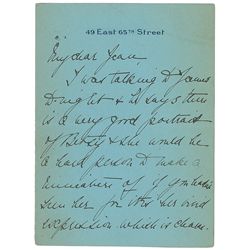 49 East 65th Street
My dear Jean,
I was talking to James
D-night & he says there
is a very good portrait
of Betsy & she would be
a hard person to make a
miniature of if you hadn't
seen her for it is her
expression which is charm.